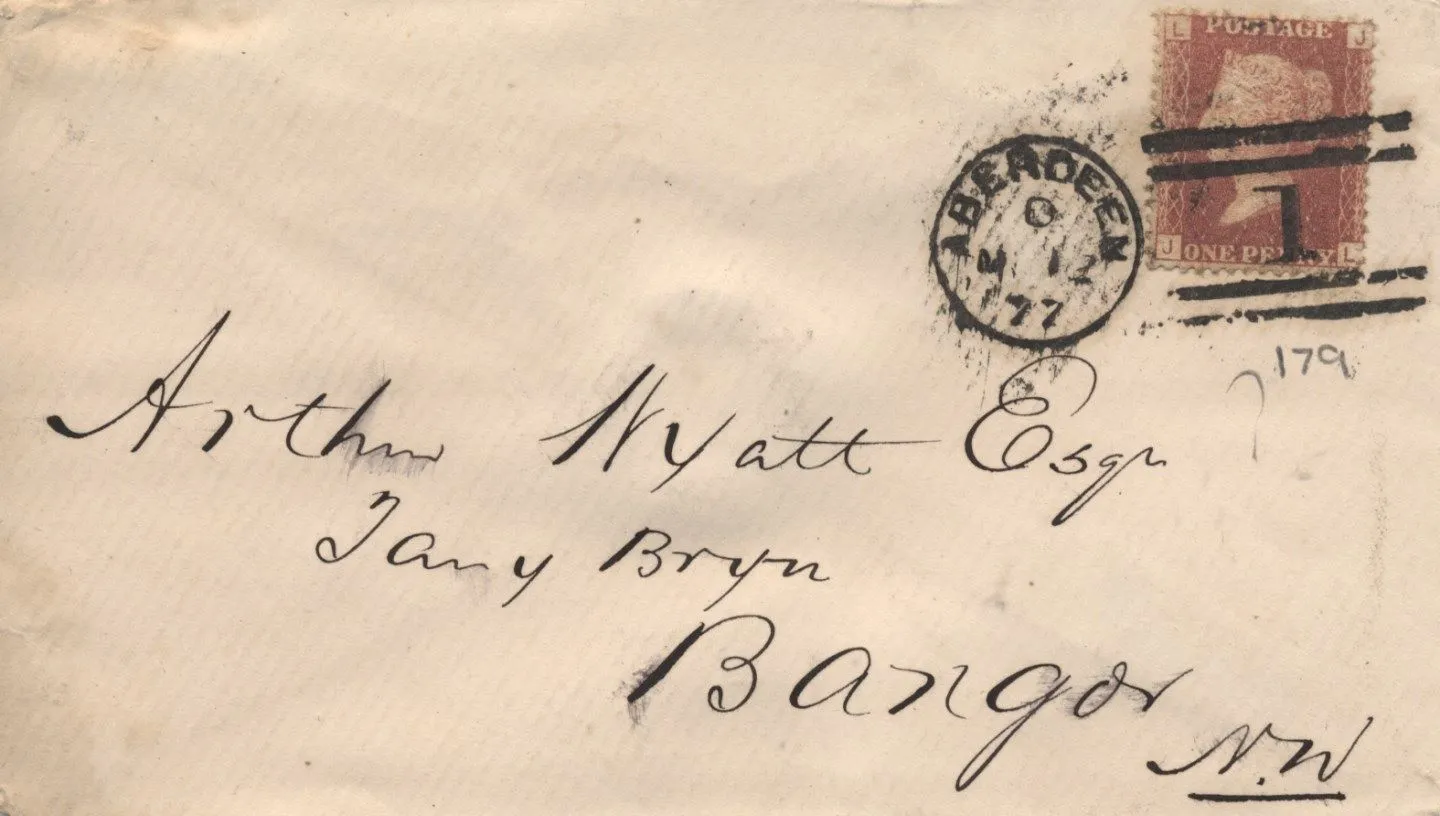 L POSTAGE J
J ONE PENNY L
ABERDEEN
O
M 12
77
1
179
Arthur Wyatt Esqr
Tany Bryn
Bangor
N.W